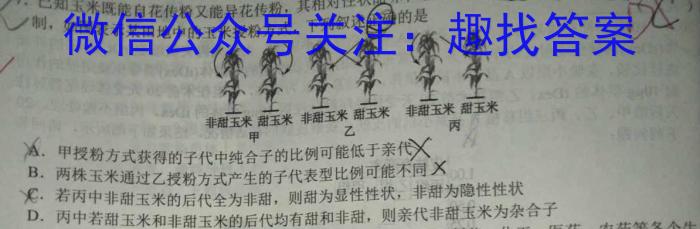 已知玉米既能自花传粉又能异花传粉，其相对性状
制，
微信公众号关注：趣找答案
的是
非甜玉米 甜玉米 非甜玉米 甜玉米 非甜玉米 甜玉米
甲 乙 丙
A. 甲授粉方式获得的子代中纯合子的比例可能低于亲代
B. 两株玉米通过乙授粉方式产生的子代表型比例可能不同
C. 若丙中非甜玉米的后代全为非甜，则甜为显性性状，非甜为隐性性状
D. 丙中若甜玉米和非甜玉米的后代均有甜和非甜，则亲代非甜玉米为杂合子